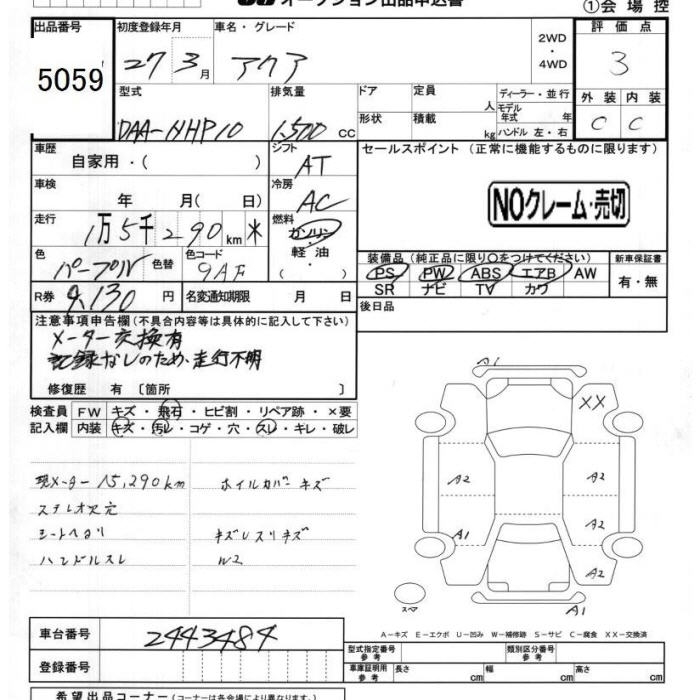 オークション出品申込書
①会場控
出品番号
5059
初度登録年月
27 3月
車名・グレード
アクア
2WD
・
4WD
評価点
3
型式
DAA-NHP10
排気量
1,500 CC
ドア
定員
人
ディーラー・並行
モデル年式 年
形状
積載
kg
ハンドル 左・右
外装 内装
C C
車歴
自家用・( )
シフト
AT
セールスポイント (正常に機能するものに限ります)
NOクレーム・売切
車検
年 月( 日)
冷房
AC
走行
1万5千290km ※
燃料
ガソリン
・軽油・
( )
色
パープル
色替
色コード
9AF
装備品 (純正品に限り○をつけてください)
PS PW ABS エアB AW
SR ナビ TV カワ
新車保証書
有・無
R券
9,130円
名変通知期限 月 日
後日品
注意事項申告欄 (不具合内容等は具体的に記入して下さい)
メーター交換有
記録なしのため、走行不明
修復歴 有 〔箇所 〕
検査員記入欄
FW キズ・飛石・ヒビ割・リペア跡・×要
内装 キズ・汚レ・コゲ・穴・スレ・キレ・破レ
現メーター 15,290km
ホイルカバーキズ
ステレオ欠
シートヘタリ
ハンドルスレ
W2
A1
XX
A2 A2
A1 A2
A2
スペア
A1
A-キズ E-エクボ U-凹み W-補修跡 S-サビ C-腐食 XX-交換済
車台番号
2443484
登録番号
型式指定番号 参考
類別区分番号 参考
車庫証明用 参考 長さ cm 幅 cm 高さ cm
希望出品コーナー (コーナーは各会場により異なります)